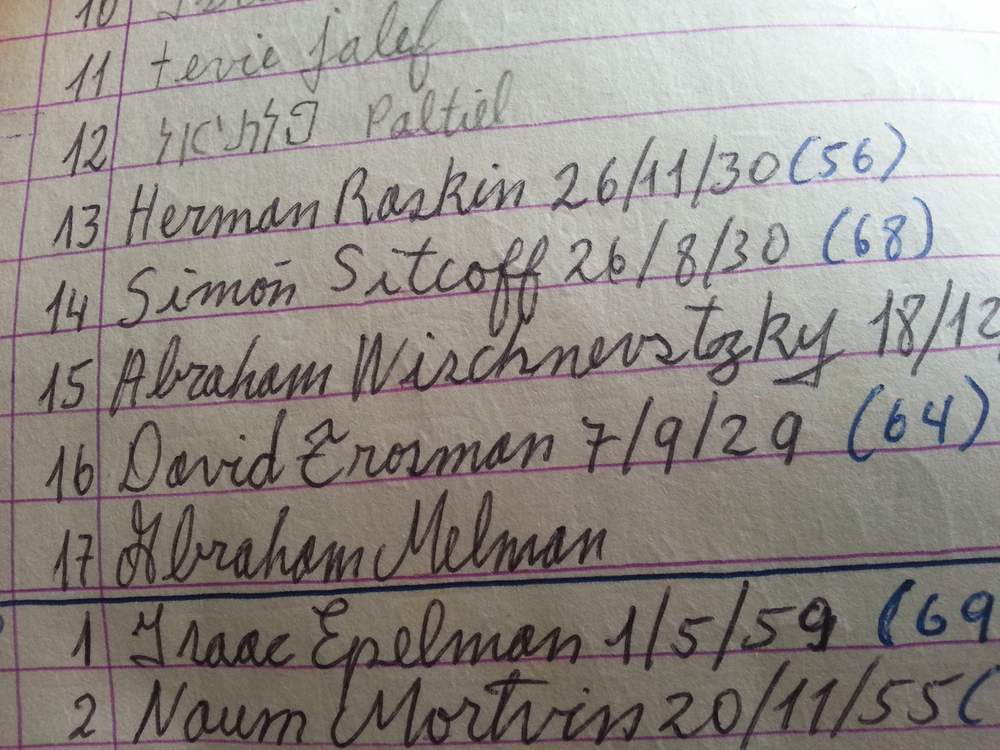 10
11 tevie jalef
12 פלטיאל Paltiel
13 Herman Raskin 26/11/30 (56)
14 Simón Sitcoff 26/8/30 (68)
15 Abraham Wischnevstzky 18/12
16 David Erosman 7/9/29 (64)
17 Abraham Melman
1 Isaac Epelman 1/5/59 (69
2 Naum Mortvin 20/11/55 (